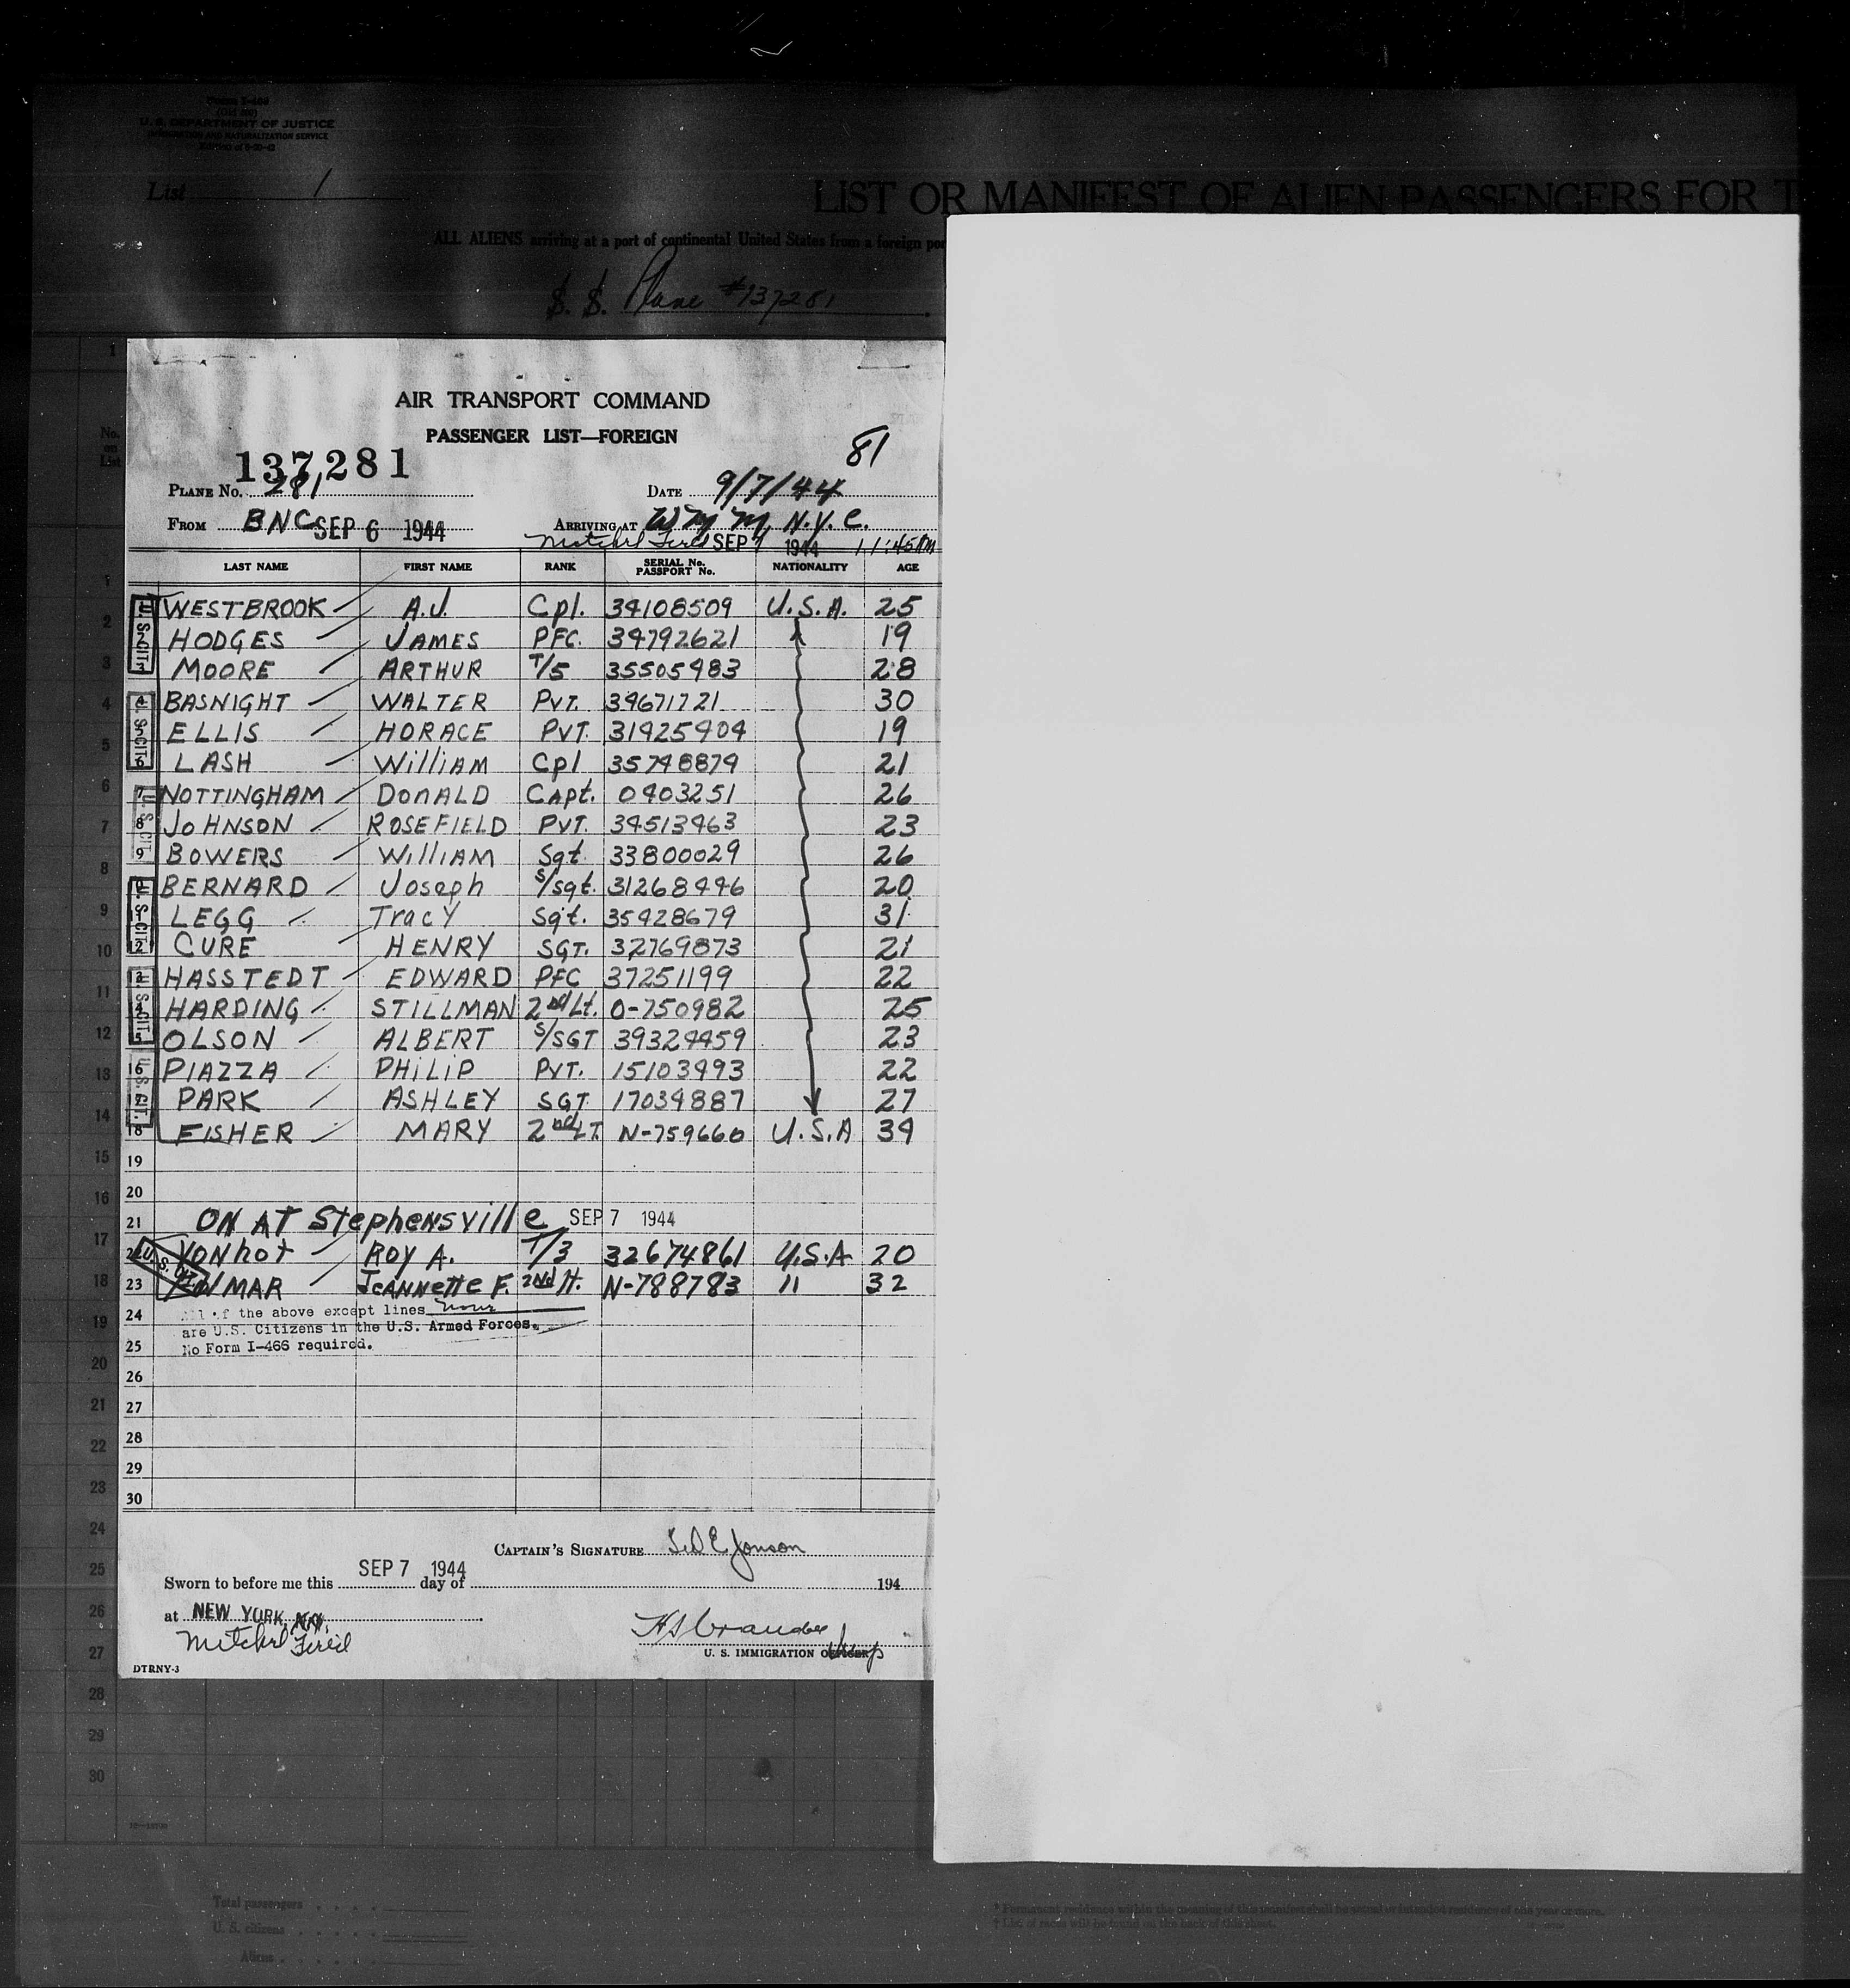 U. S. DEPARTMENT OF JUSTICE
IMMIGRATION AND NATURALIZATION SERVICE
List 1
LIST OR MANIFEST OF ALIEN PASSENGERS FOR T
ALL ALIENS arriving at a port of continental United States from a foreign por
S. S. Plane #137281
AIR TRANSPORT COMMAND
PASSENGER LIST—FOREIGN
81
137,281
PLANE No. 281 DATE 9/7/44
FROM BNC SEP 6 1944 ARRIVING AT N.Y.C.
Mitchel Field SEP 7 1944 11:45 AM
LAST NAME FIRST NAME RANK SERIAL No. PASSPORT No. NATIONALITY AGE
1 WESTBROOK A.J. Cpl. 34108509 U.S.A. 25
2 HODGES JAMES PFC. 34792621 19
3 MOORE ARTHUR T/5 35505983 28
4 BASNIGHT WALTER PVT. 34671721 30
5 ELLIS HORACE PVT. 31425404 19
6 LASH WilliAM Cpl 35748879 21
7 NOTTINGHAM DONALD CApt. 0403251 26
8 JOHNSON ROSEFIELD PVT. 34513463 23
9 BOWERS WilliAM Sgt. 33800029 26
10 BERNARD Joseph S/Sgt. 31268446 20
11 LEGG TracY Sgt. 35428679 31
12 CURE HENRY SGT. 32769873 21
13 HASSTEDT EDWARD PFC 37251199 22
14 HARDING STILLMAN 2nd Lt. O-750982 25
15 OLSON ALBERT S/SGT 39324459 23
16 PIAZZA PHILIP PVT. 15103493 22
17 PARK ASHLEY SGT 17034887 27
18 FISHER MARY 2nd LT. N-759660 U.S.A 34
19
20
21 ON AT Stephensville SEP 7 1944
22 VONhot ROY A. T/3 32674861 U.S.A 20
23 JEANNette F. 2Nd lt. N-788783 11 32
24 All of the above except lines none
are U.S. Citizens in the U.S. Armed Forces.
25 No Form I-466 required.
26
27
28
29
30
CAPTAIN'S SIGNATURE Ted E Jonson
SEP 7 1944
Sworn to before me this day of 194
at NEW YORK, N.Y.
Mitchel Field
U. S. IMMIGRATION OFFICER
DTRNY-3
Total passengers
U. S. citizens
Aliens
* Permanent residence within the meaning of this manifest shall be actual or intended residence of one year or more.
† List of races will be found on the back of this sheet.